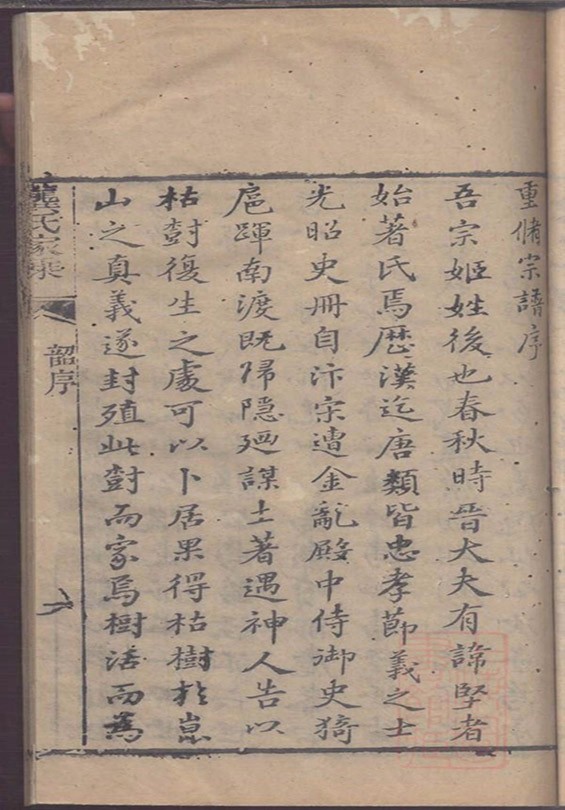 重脩宗譜序
吾宗姬姓後也春秋時晉大夫有諱堅者
始著氏焉歷漢迄唐類皆忠孝節義之士
光昭史冊自汴宋遭金亂殿中侍御史猗
扈蹕南渡既歸隱廼謀土著遇神人告以
枯樹復生之處可以卜居果得枯樹於崑
山之真義遂封殖此樹而家焉樹活而爲
龔氏家乘
韶序
六